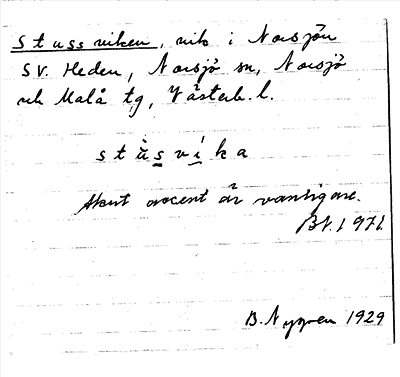 Stussviken, vik i Norsjön
SV. Heden, Norsjö sn, Norsjö
och Malå tg, Västerb. l.
stùsvika
Akut accent är vanligare.
BN. 1971.
B. Nygren 1929